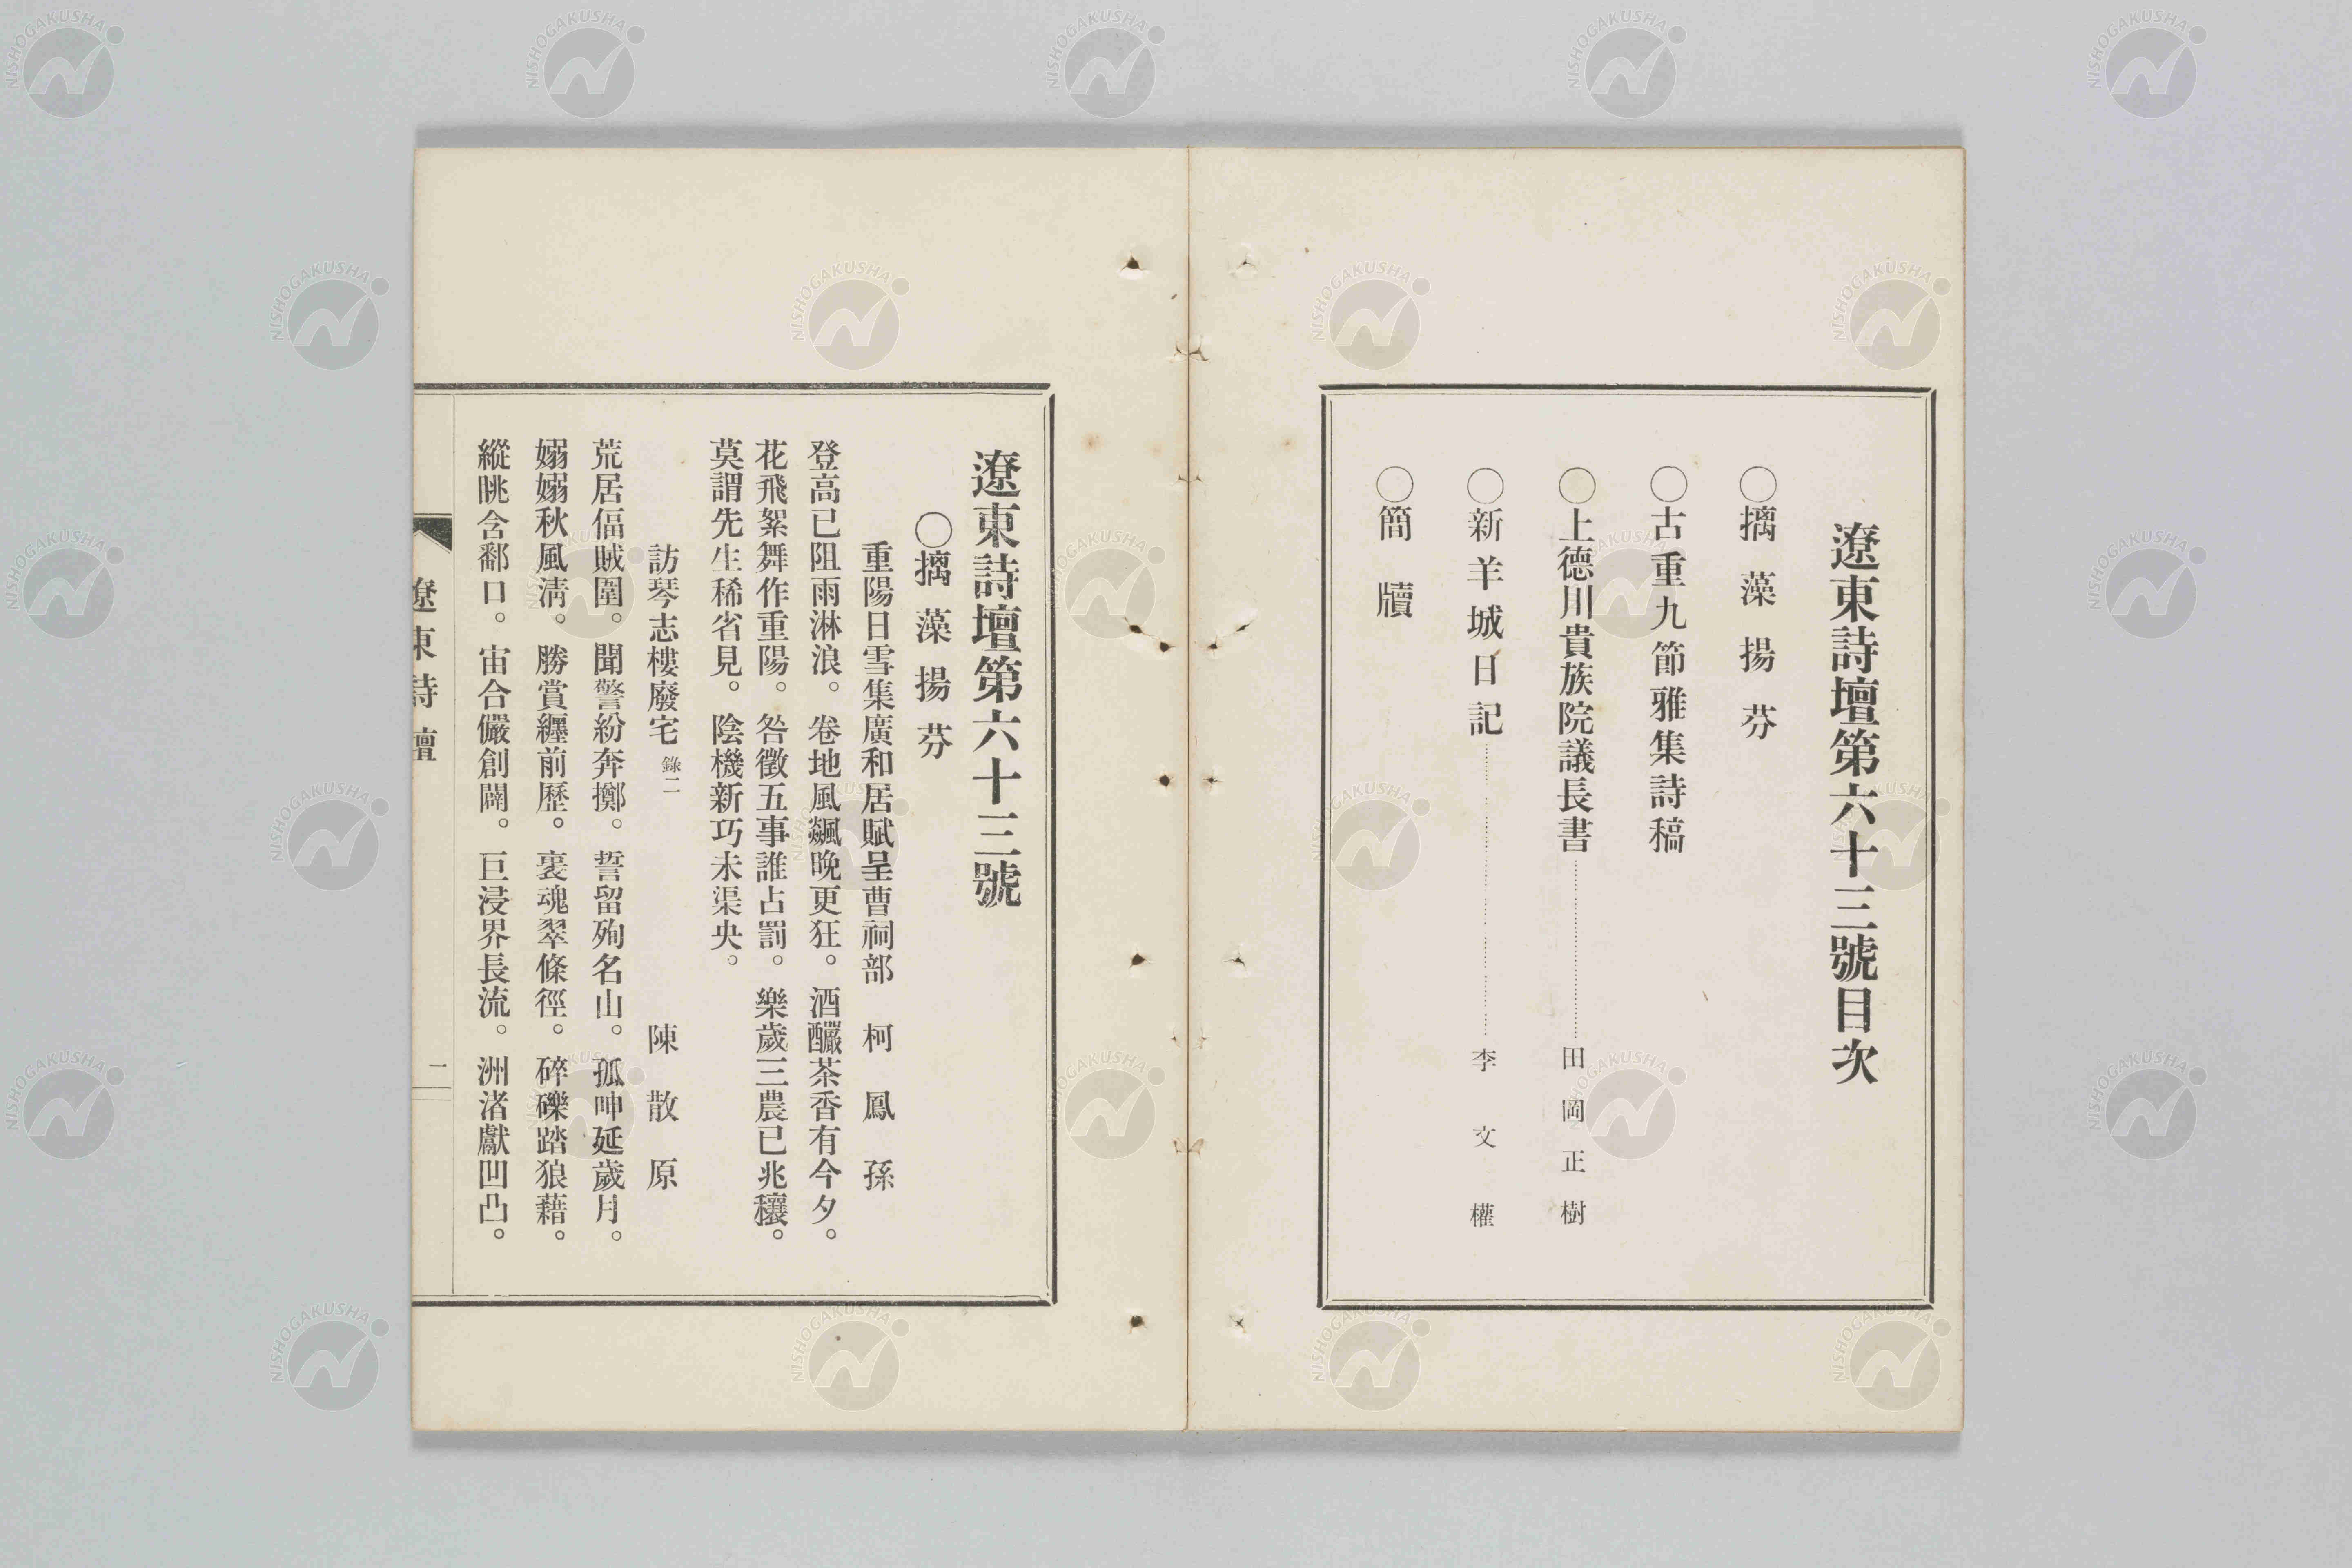 遼東詩壇第六十三號目次
〇摛藻揚芬
〇古重九節雅集詩稿
〇上德川貴族院議長書 田岡正樹
〇新羊城日記 李文權
〇簡牘
遼東詩壇第六十三號
〇摛藻揚芬
重陽日雪集廣和居賦呈曹祠部 柯鳳孫
登高已阻雨淋浪。卷地風飆晚更狂。酒釅茶香有今夕。
花飛絮舞作重陽。咎徵五事誰占罰。樂歲三農已兆穰。
莫謂先生稀省見。陰機新巧未渠央。
訪琴志樓廢宅 錄二 陳散原
荒居偪賊圍。聞警紛奔擲。誓留殉名山。孤呻延歲月。
嫋嫋秋風淸。勝賞纏前歷。裊魂翠條徑。碎礫踏狼藉。
縱眺含鄱口。宙合儼創闢。巨浸界長流。洲渚獻凹凸。
遼東詩壇
一
NISHOGAKUSHA